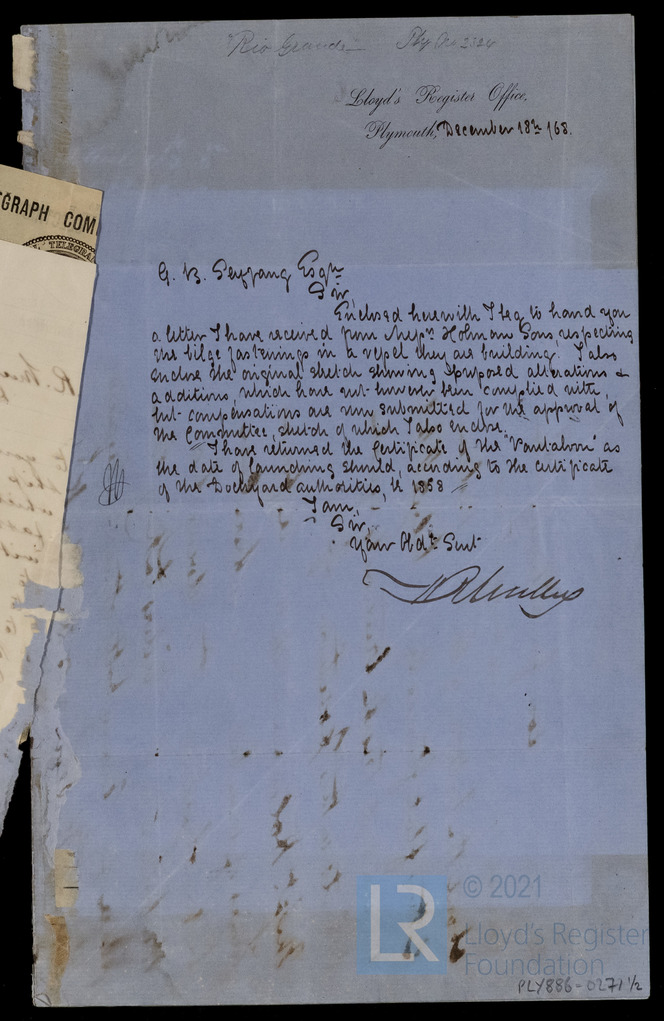 Rio Grande Ply No 2324
Lloyd's Register Office,
Plymouth, December 18th /68.
GRAPH COM
TELEGRA
G. B. Seyfang Esqre
Sir,
Enclosed herewith I beg to hand you
a letter I have received from Messrs Holman Sons, respecting
the bilge fastenings in a vessel they are building. I also
enclose the original sketch showing proposed alterations &
additions, which have not however been complied with,
but compensations are now submitted for the approval of
the Committee, sketch of which I also enclose.
I have returned the Certificate of the "Vantaloon" as
the date of launching should, acording to the certificate
of the Dockyard authorities, be 1858
I am,
Sir,
Your Obdt Servt
© 2021
LR
Lloyd's Register
Foundation
PLY886-0271 1/2